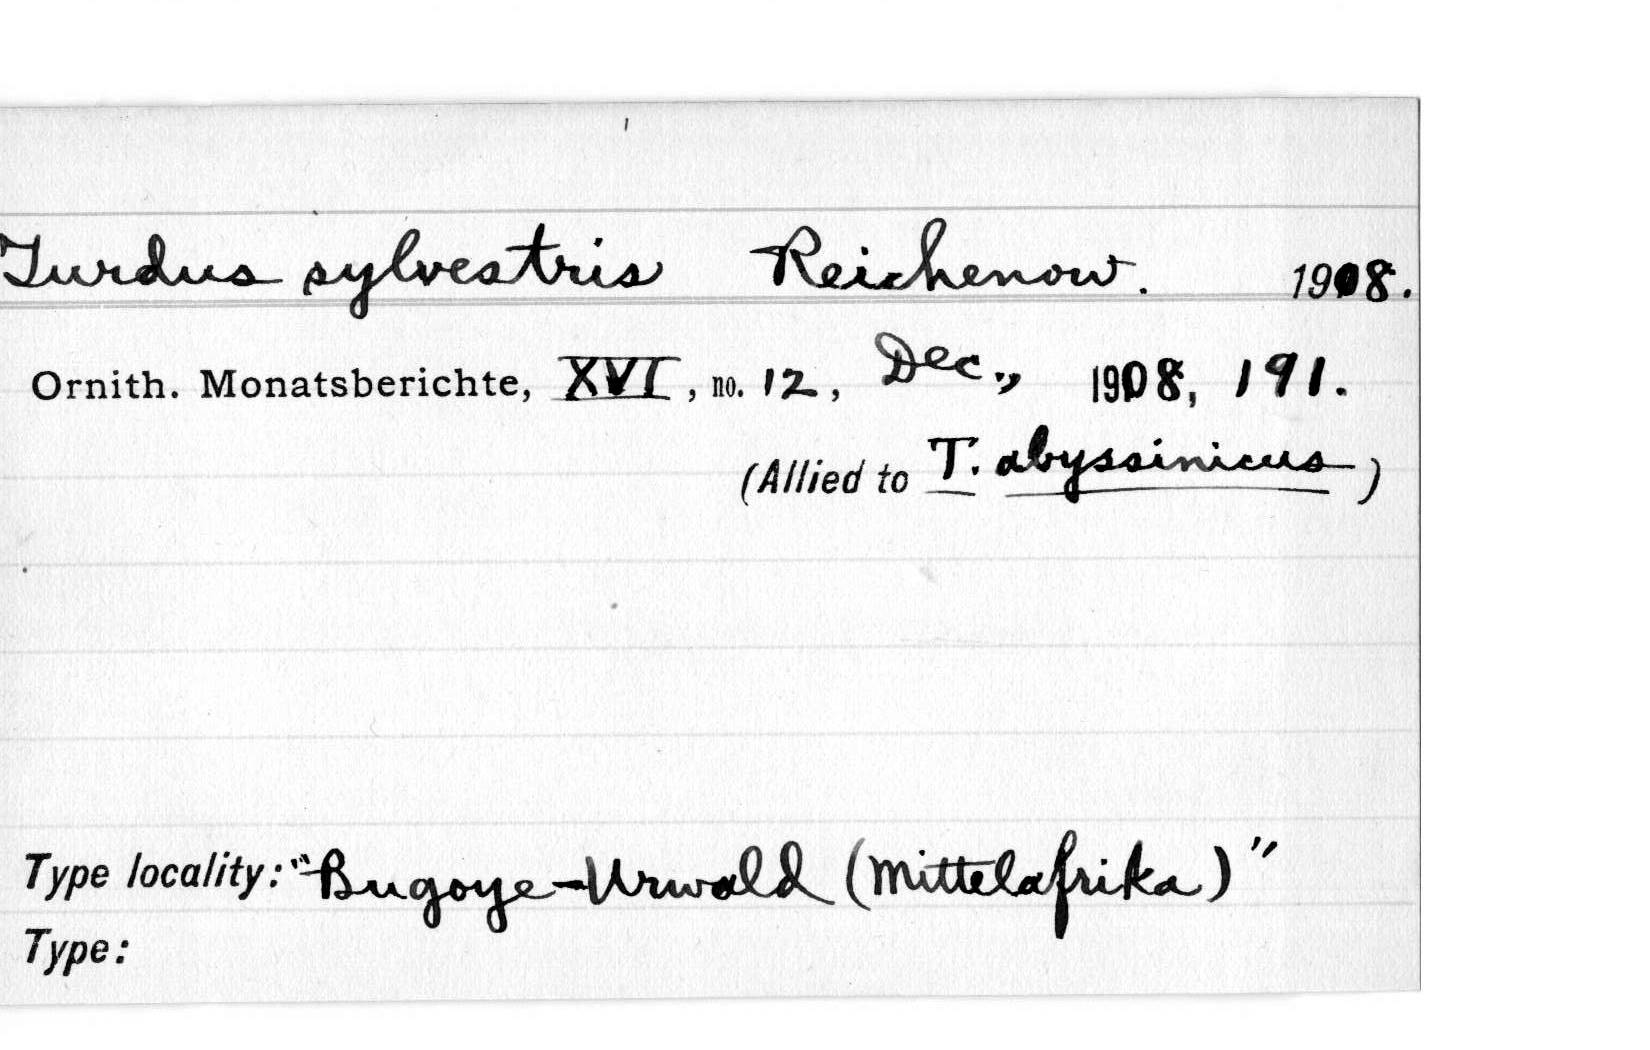 Turdus sylvestris Reichenow. 1908.
Ornith. Monatsberichte, XVI, no. 12, Dec., 1908, 191.
(Allied to T. abyssinicus)
Type locality: "Bugoye-Urwald (Mittelafrika)"
Type: